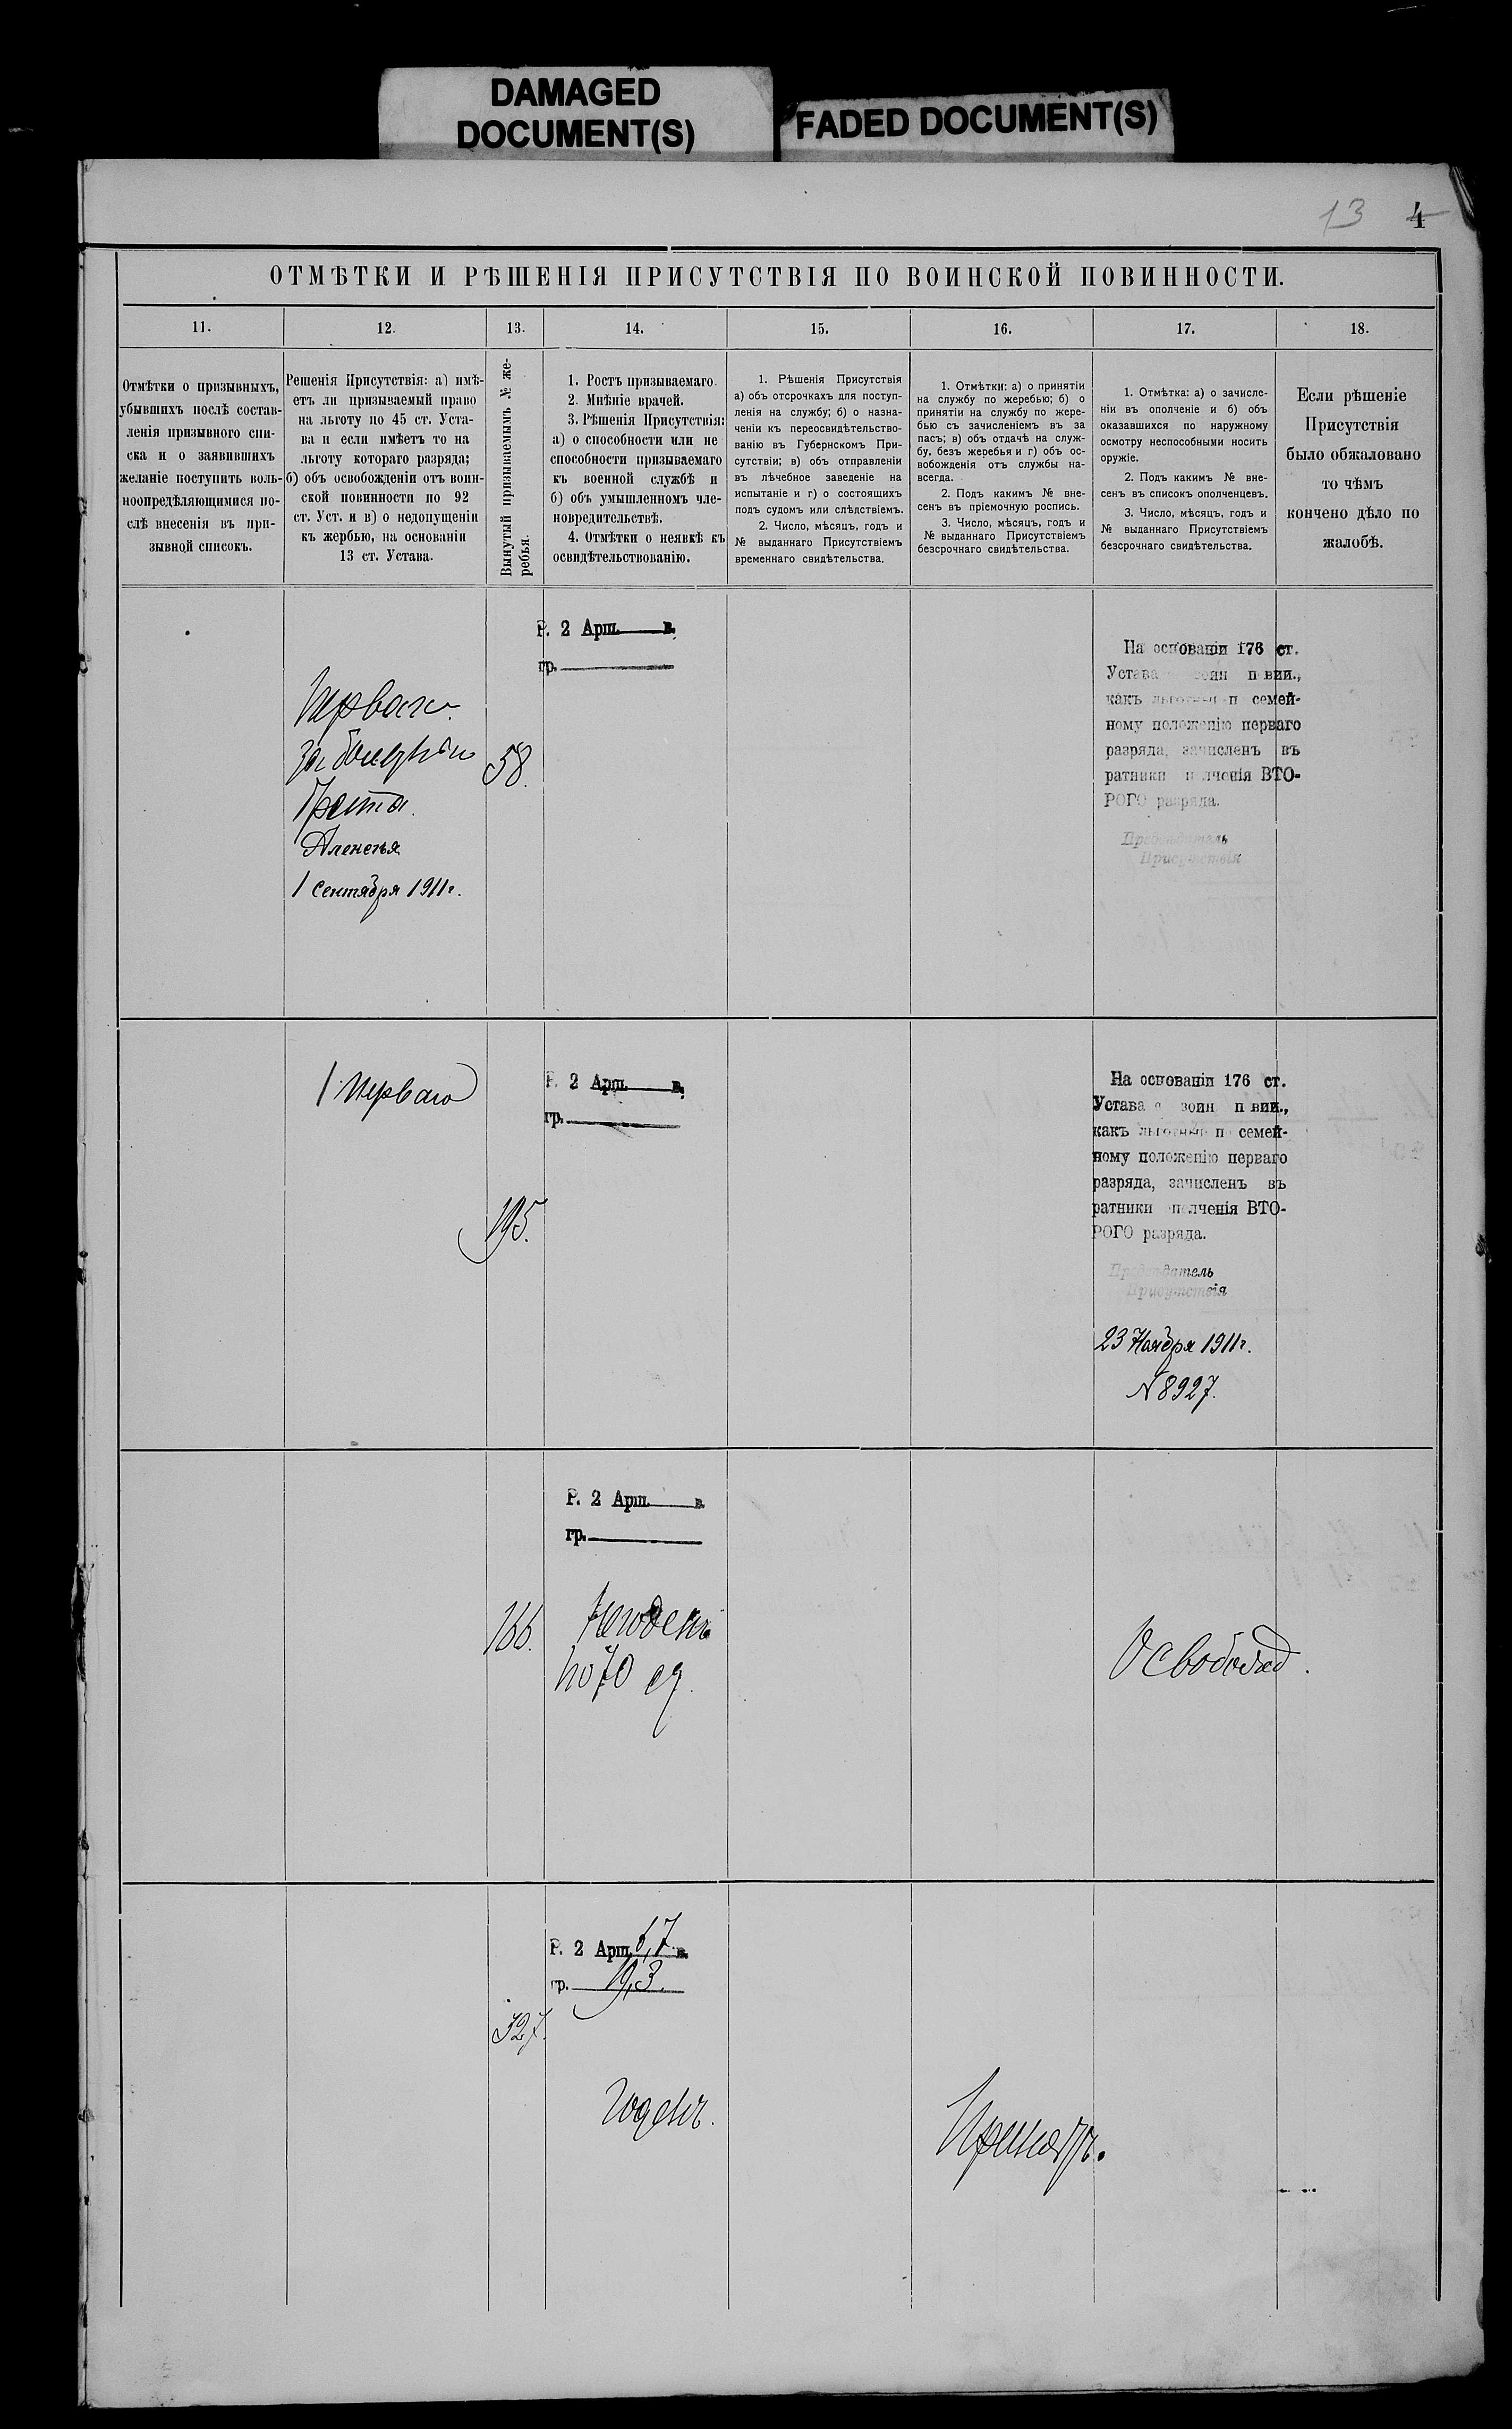 DAMAGED
DOCUMENT(S)
FADED DOCUMENT(S)
13 4
ОТМѢТКИ И РѢШЕНІЯ ПРИСУТСТВІЯ ПО ВОИНСКОЙ ПОВИННОСТИ.
11.
12.
13.
14.
15.
16.
17.
18.
Отмѣтки о призывныхъ,
убывшихъ послѣ состав-
ленія призывного спи-
ска и о заявившихъ
желаніе поступить воль-
ноопредѣляющимися по-
слѣ внесенія въ при-
зывной списокъ.
Решенія Присутствія: а) имѣ-
етъ ли призываемый право
на льготу по 45 ст. Уста-
ва и если имѣетъ то на
льготу котораго разряда;
б) объ освобожденіи отъ воин-
ской повинности по 92
ст. Уст. и в) о недопущеніи
къ жербью, на основаніи
13 ст. Устава.
Вынутый призываемымъ № же-
ребья.
1. Ростъ призываемаго.
2. Мнѣніе врачей.
3. Рѣшенія Присутствія:
а) о способности или не
способности призываемаго
къ военной службѣ и
б) объ умышленномъ чле-
новредительствѣ.
4. Отмѣтки о неявкѣ къ
освидѣтельствованію.
1. Рѣшенія Присутствія
а) объ отсрочкахъ для поступ-
ленія на службу; б) о назна-
ченіи къ переосвидѣтельство-
ванію въ Губернскомъ При-
сутствіи; в) объ отправленіи
въ лѣчебное заведеніе на
испытаніе и г) о состоящихъ
подъ судомъ или слѣдствіемъ.
2. Число, мѣсяцъ, годъ и
№ выданнаго Присутствіемъ
временнаго свидѣтельства.
1. Отмѣтки: а) о принятіи
на службу по жеребью; б) о
принятіи на службу по жере-
бью съ зачисленіемъ въ за
пасъ; в) объ отдачѣ на служ-
бу, безъ жеребья и г) объ ос-
вобожденія отъ службы на-
всегда.
2. Подъ какимъ № вне-
сенъ въ пріемочную роспись.
3. Число, мѣсяцъ, годъ и
№ выданнаго Присутствіемъ
безсрочнаго свидѣтельства.
1. Отмѣтка: а) о зачисле-
ніи въ ополченіе и б) объ
оказавшихся по наружному
осмотру неспособными носить
оружіе.
2. Подъ какимъ № вне-
сенъ въ списокъ ополченцевъ.
3. Число, мѣсяцъ, годъ и
№ выданнаго Присутствіемъ
безсрочнаго свидѣтельства.
Если рѣшеніе
Присутствія
было обжаловано
то чѣмъ
кончено дѣло по
жалобѣ.
Перваго
за болѣзнію
брата
Алексѣя
1 Сентября 1911г.
58.
Р. 2 Арш. в.
гр.
На основаніи 176 ст.
Устава воин п вин.,
какъ п семей-
ному положенію перваго
разряда, зачисленъ въ
ратники лченія ВТО-
РОГО разряда.
Предсѣдатель
Присутствія
1 Перваго
195.
Р. 2 Арш. в.
гр.
На основаніи 176 ст.
Устава о воин п вин.,
какъ п семей-
ному положенію перваго
разряда, зачисленъ въ
ратники п лченія ВТО-
РОГО разряда.
Предсѣдатель
Присутствія
23 Ноября 1911г.
№ 8927.
166.
Р. 2 Арш. в.
гр.
Негоденъ
по 70
Освобожд.
327.
Р. 2 Арш. 6,7 в.
гр. 19,3.
Годенъ.
Принятъ.